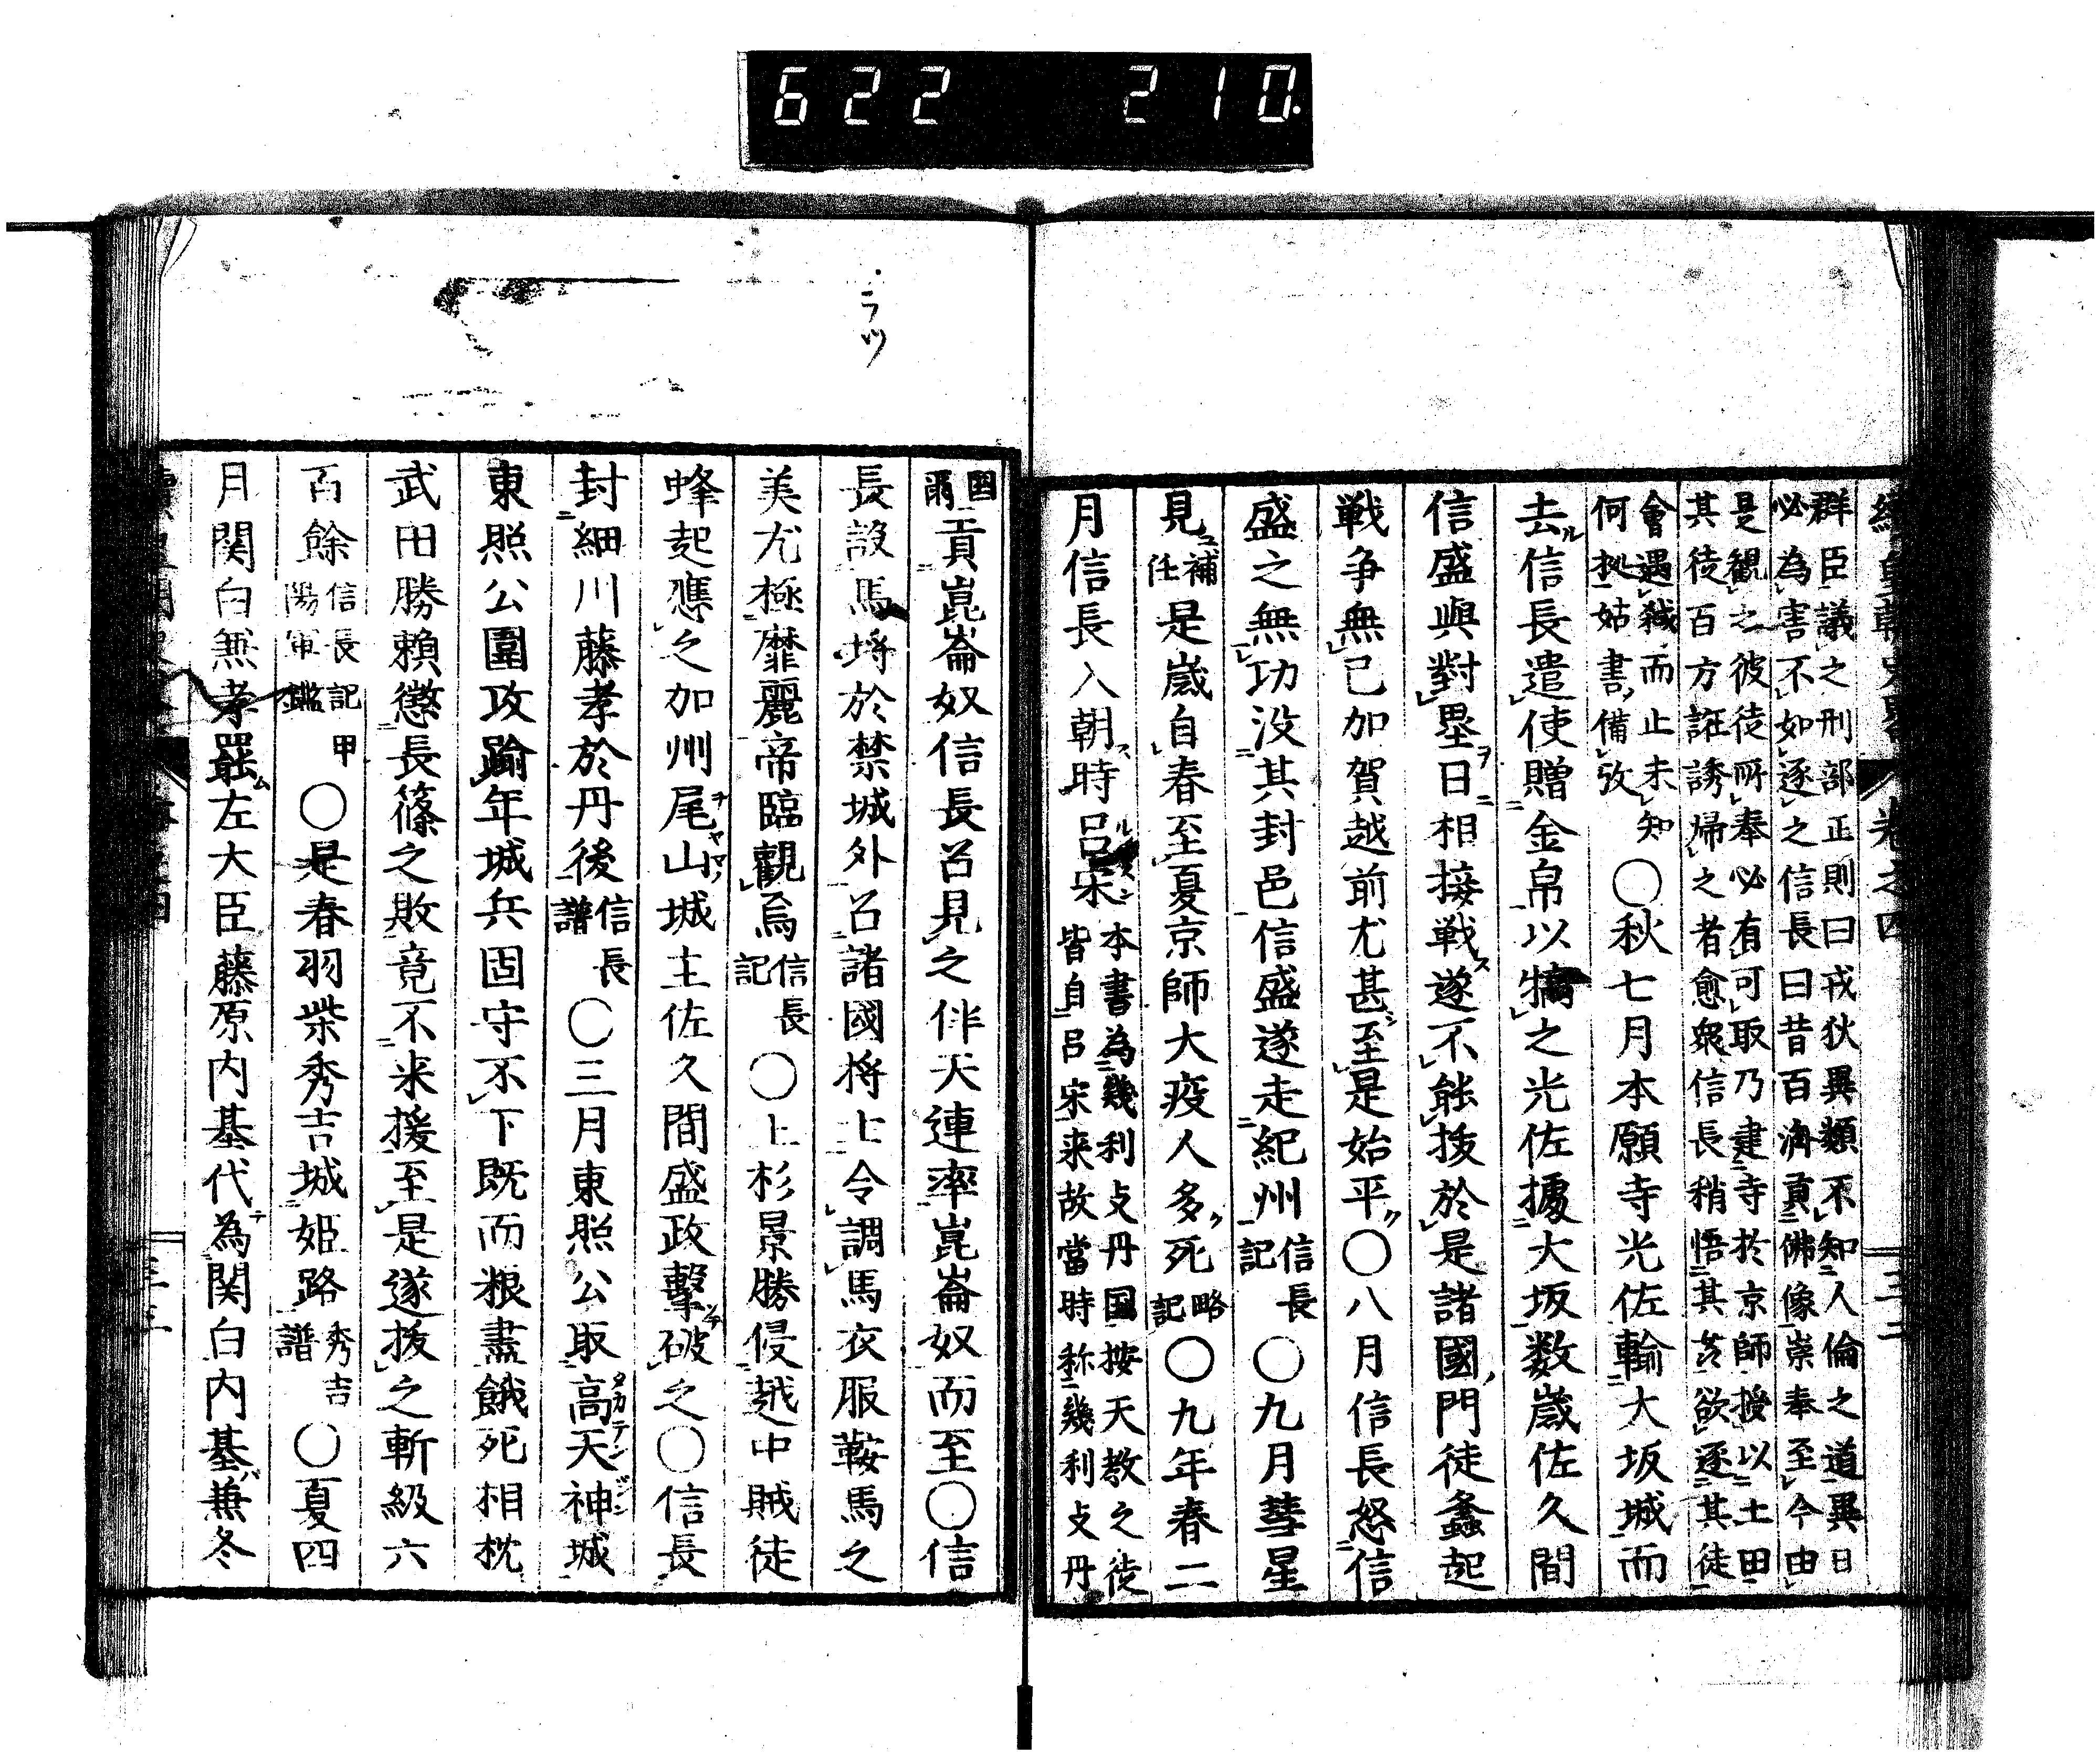 622 210.
續皇朝史略 卷之四 三十二
群臣議之刑部正則曰戎狄異類不知人倫之道異日
必為害不如逐之信長曰昔百濟貢佛像崇奉至今由
是観之彼徒所奉必有可取乃建寺於京師授以土田
其徒百方誑誘帰之者愈衆信長稍悟其姦欲逐其徒
會遇弑而止未知
何拠姑書備攷
○秋七月本願寺光佐輸大坂城而
去信長遣使贈金帛以犒之光佐據大坂数歳佐久間
信盛與對塁日相接戦遂不能抜於是諸國門徒蠭起
戦争無已加賀越前尤甚至是始平○八月信長怒信
盛之無功没其封邑信盛遂走紀州信長記○九月彗星
見補任是歳自春至夏京師大疫人多死略記○九年春二
月信長入朝時呂宋
本書為幾利攴丹国按天教之徒
皆自呂宋来故當時称幾利攴丹
国爾貢崑崙奴信長召見之伴天連率崑崙奴而至○信
長設馬埒於禁城外召諸國将士令調馬衣服鞍馬之
美尤極靡麗帝臨觀焉信長記○上杉景勝侵越中賊徒
蜂起應之加州尾山城主佐久間盛政擊破之○信長
封細川藤孝於丹後信長譜○三月東照公取高天神城
東照公圍攻踰年城兵固守不下既而粮盡餓死相枕
武田勝頼懲長篠之敗竟不来援至是遂抜之斬級六
百餘信長記甲陽軍鑑○是春羽柴秀吉城姫路秀吉譜○夏四
月関白兼孝罷左大臣藤原内基代為関白内基兼冬
ラツ